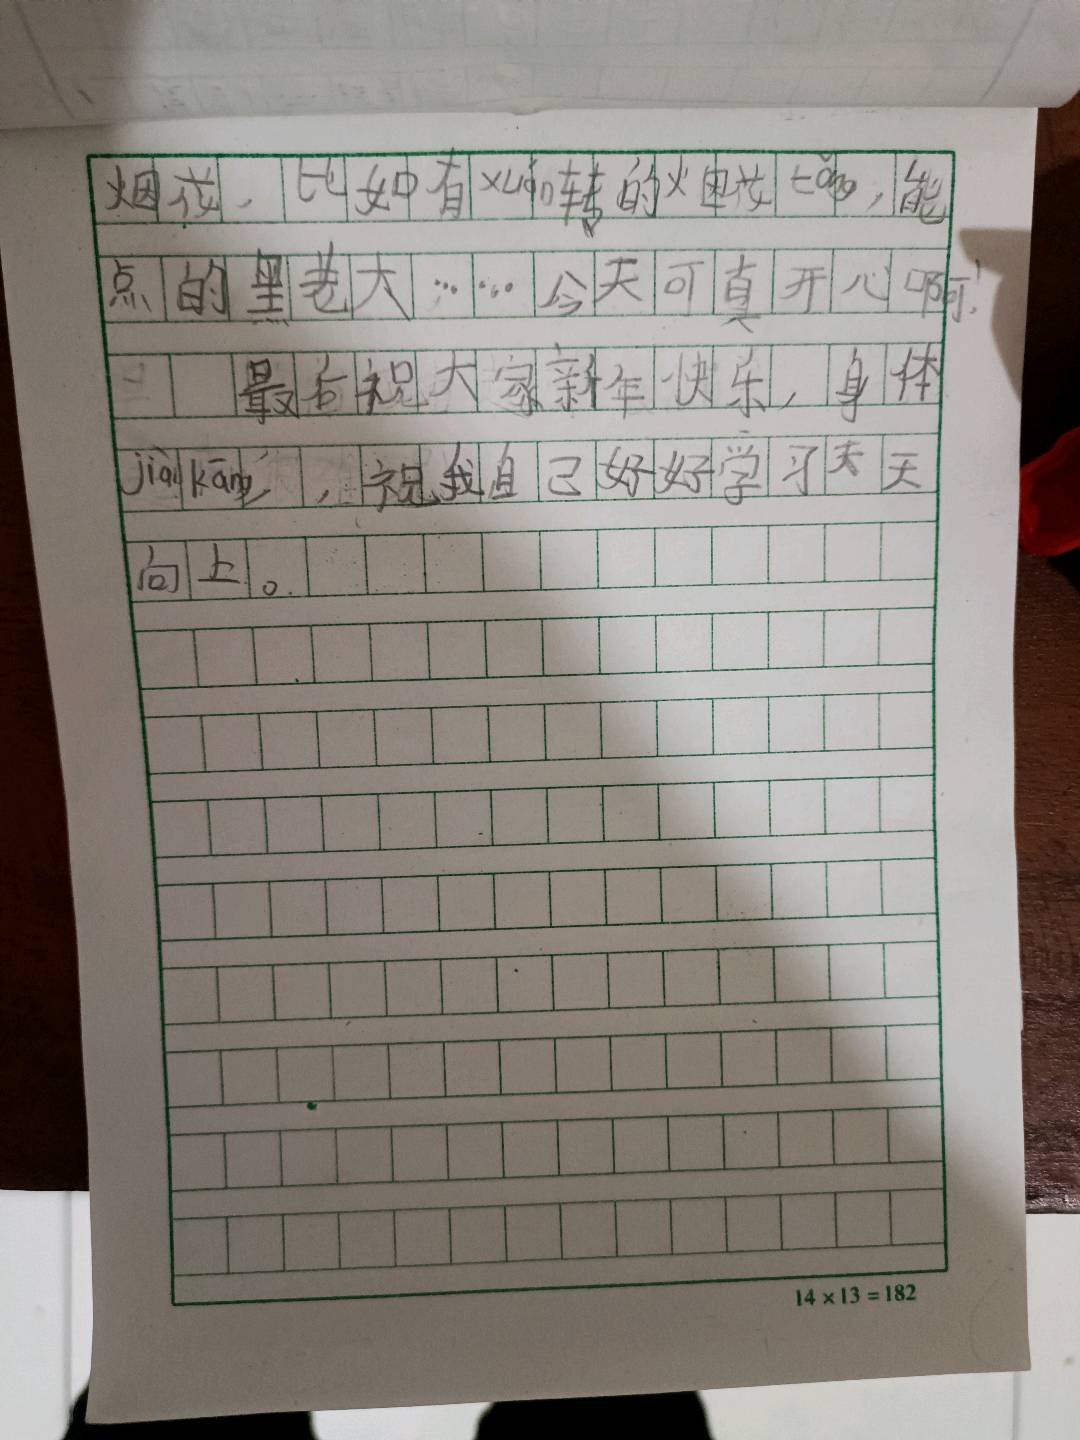 烟花，比如有xuán转的烟花tǒng，能
点的黑老大……今天可真开心啊！
最后祝大家新年快乐，身体
jiànkāng，祝我自己好好学习天天
向上。
14×13=182